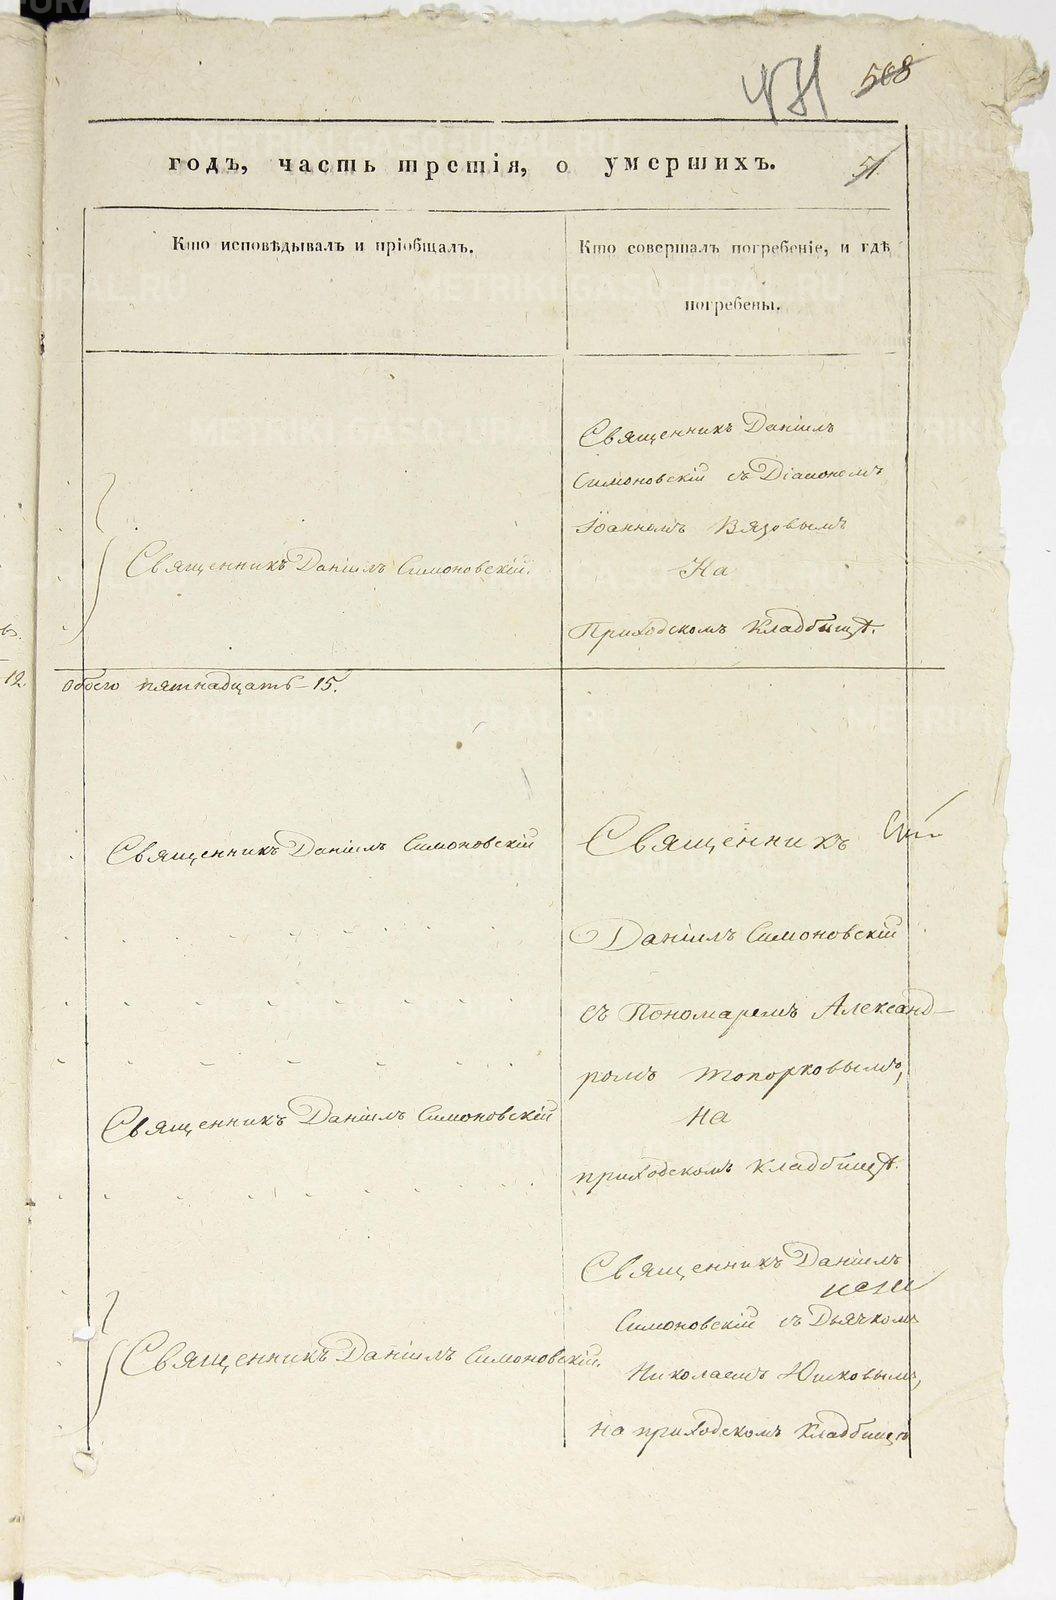 471 508
годъ, часть третія, о умершихъ. 51
Кто исповѣдывалъ и пріобщалъ.
Кто совершалъ погребеніе, и гдѣ
погребены.
Священникъ Даніилъ
Симоновскій съ Діакономъ
Іоанномъ Вязовымъ
На
Приходскомъ Кладбищѣ.
Священникъ Даніилъ Симоновскій.
12. обоего пятнадцать - 15.
Священникъ Даніилъ Симоновскій
Священникъ
Даніилъ Симоновскій
съ Пономаремъ Александ-
ромъ Топорковымъ,
на
приходскомъ кладбищѣ.
Священникъ Даніилъ Симоновскій
Священникъ Даніилъ
Симоновскій съ Дьячкомъ
Николаемъ Юшковымъ,
на приходскомъ Кладбищѣ
Священникъ Даніилъ Симоновскій.
METRIKI.GASO-URAL.RU